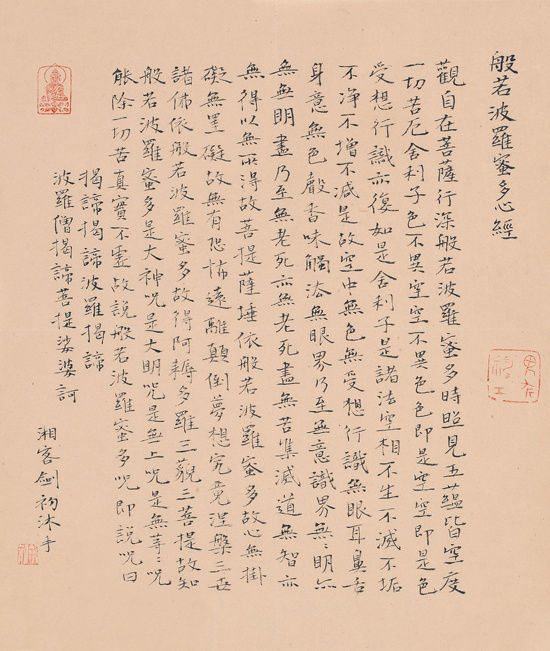 般若波羅蜜多心經
觀自在菩薩行深般若波羅蜜多時照見五蘊皆空度
一切苦厄舍利子色不異空空不異色色即是空空即是色
受想行識亦復如是舍利子是諸法空相不生不滅不垢
不净不增不減是故空中無色無受想行識無眼耳鼻舌
身意無色聲香味觸法無眼界乃至無意識界無〻明亦
無無明盡乃至無老死亦無老死盡無苦集滅道無智亦
無得以無所得故菩提薩埵依般若波羅蜜多故心無掛
礙無罣礙故無有恐怖遠離顛倒夢想究竟涅槃三世
諸佛依般若波羅蜜多故得阿耨多羅三藐三菩提故知
般若波羅蜜多是大神呪是大明呪是無上呪是無等〻呪
能除一切苦真實不虛故說般若波羅蜜多呪即說呪曰
揭諦揭諦波羅揭諦
波羅僧揭諦菩提娑婆訶
湘客劍初沐手